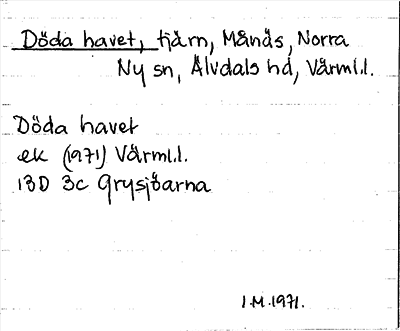 Döda havet, tjärn, Månäs, Norra
Ny sn, Älvdals hd, Värml.l.
Döda havet
ek (1971) Värml.l.
13D 3c Grysjöarna
I.M. 1971.